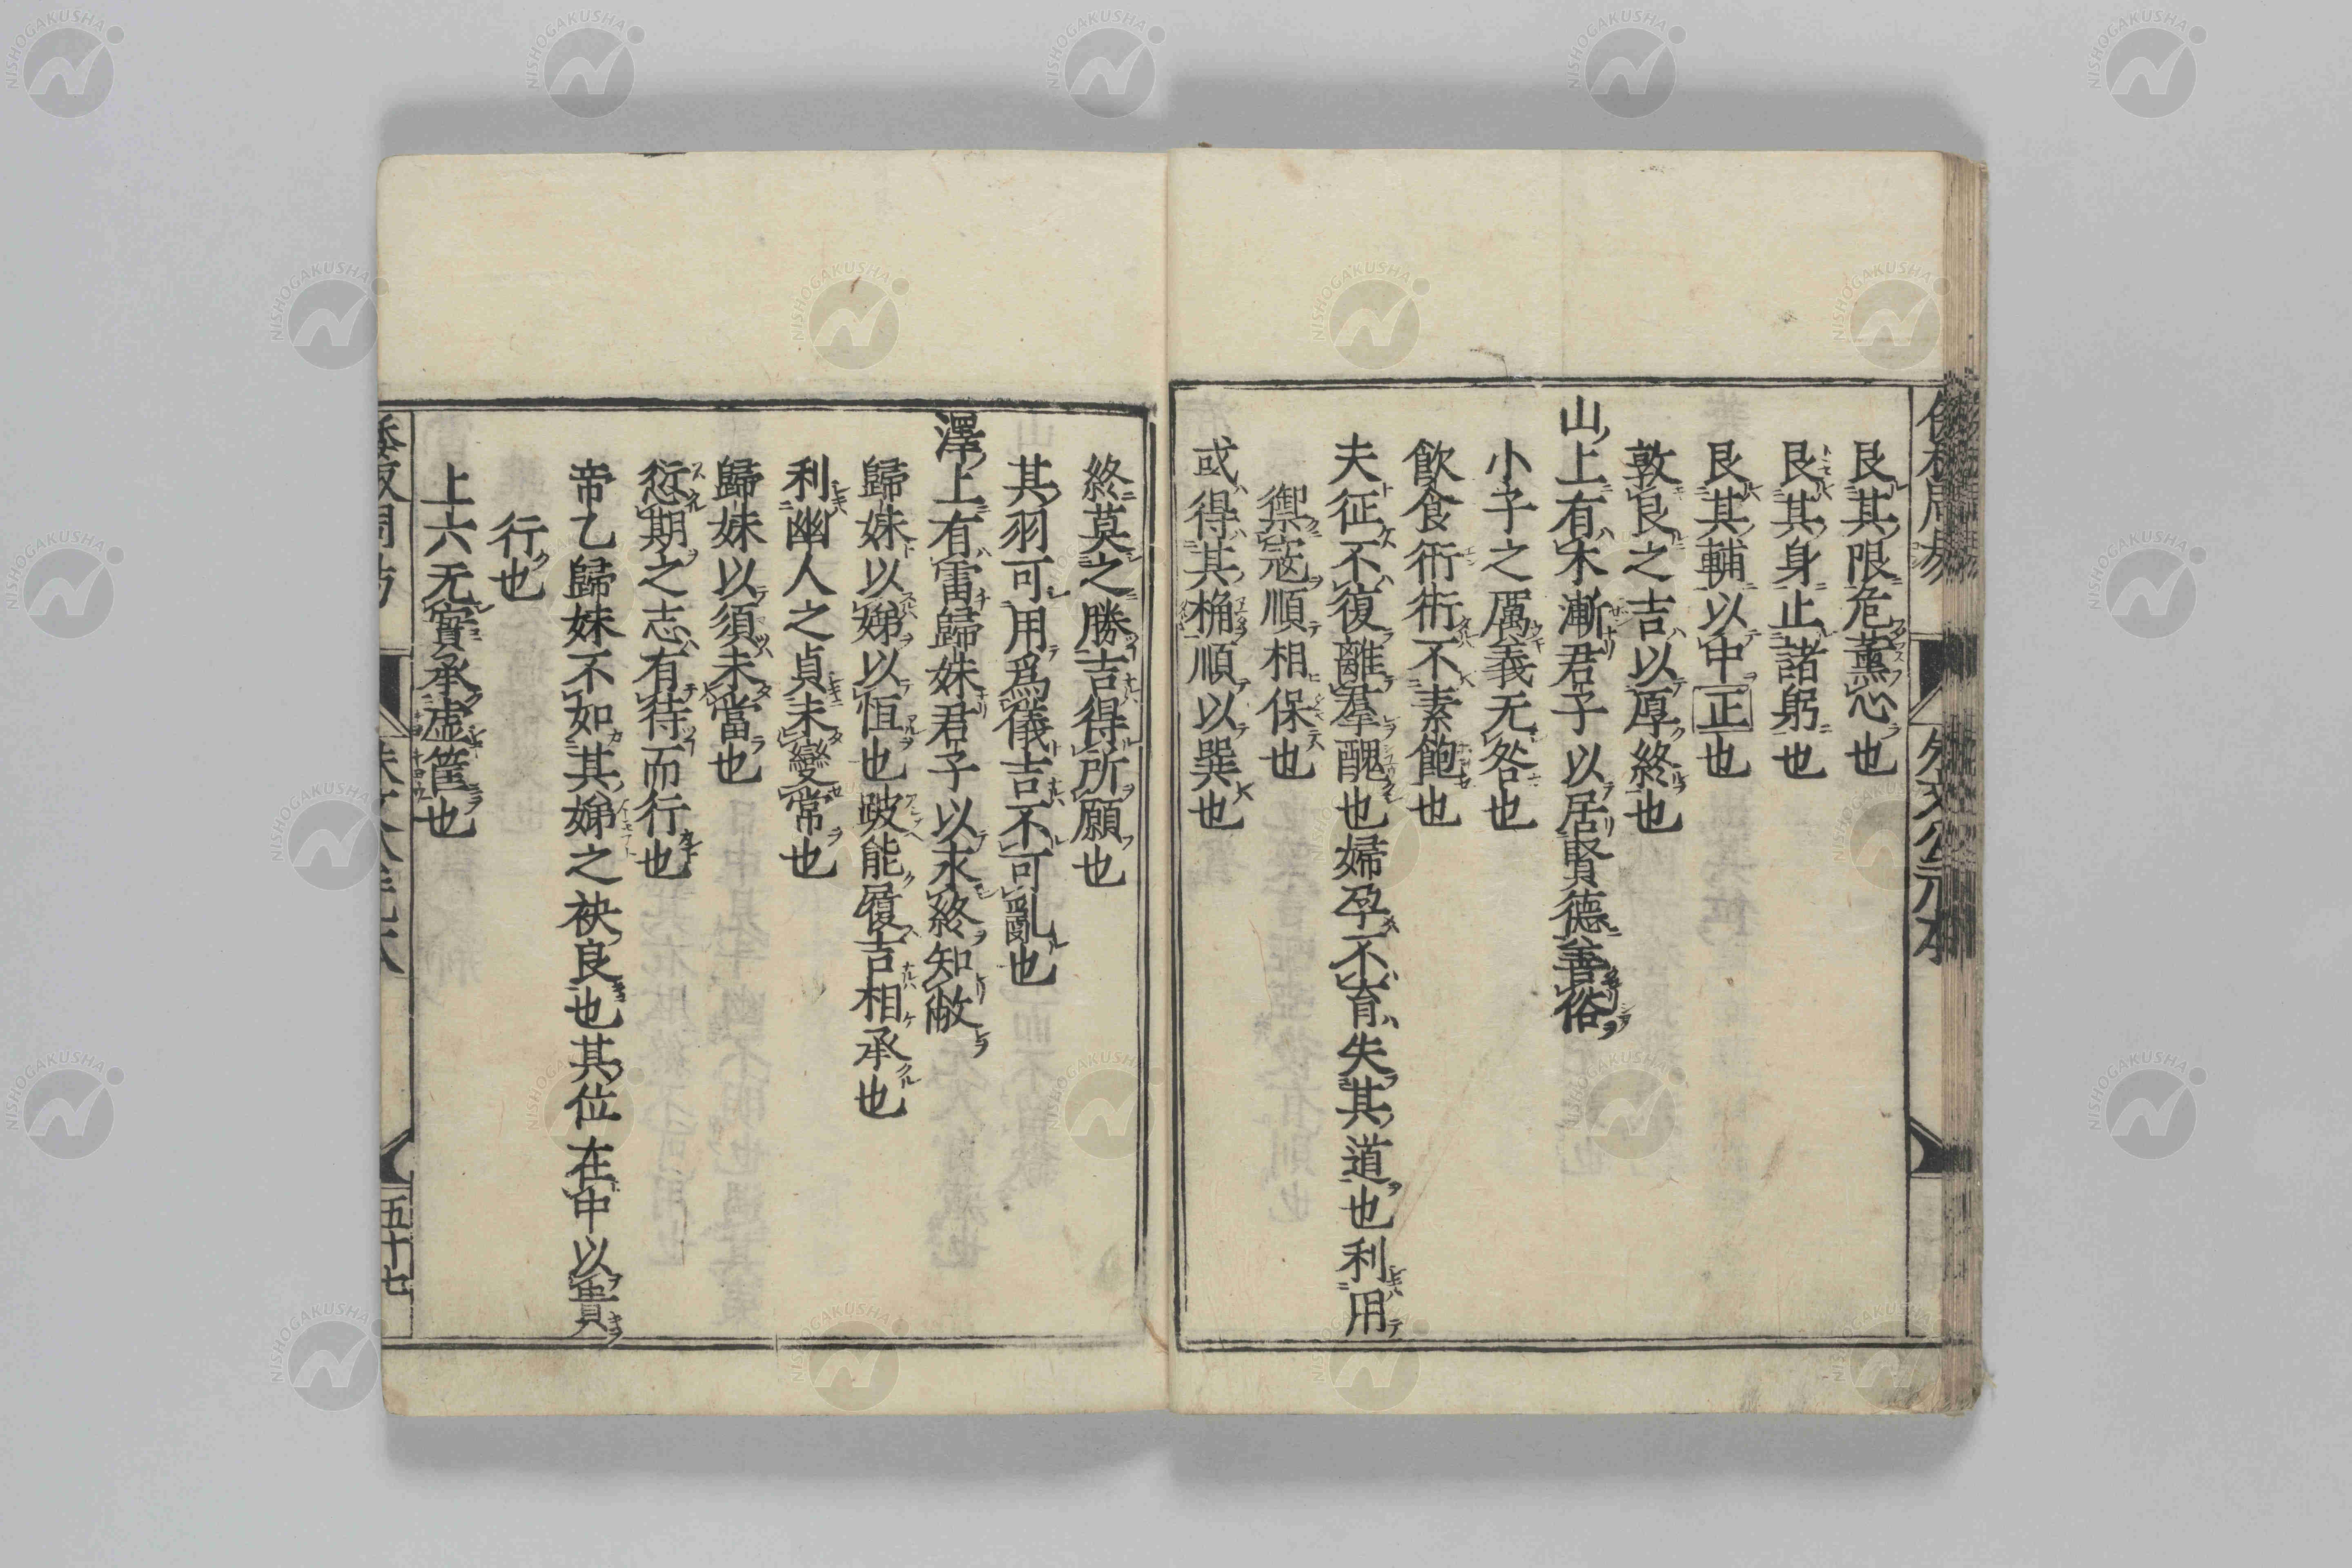 艮其限危薰心也
艮其身止諸躬也
艮其輔以中正也
敦艮之吉以厚終也
山上有木漸君子以居賢德善俗
小子之厲義无咎也
飲食衎衎不素飽也
夫征不復離羣醜也婦孕不育失其道也利用
禦寇順相保也
或得其桷順以巽也
終莫之勝吉得所願也
其羽可用爲儀吉不可亂也
澤上有雷歸妹君子以永終知敝
歸妹以娣以恒也跛能履吉相承也
利幽人之貞未變常也
歸妹以須未當也
愆期之志有待而行也
帝乙歸妹不如其娣之袂良也其位在中以貴
行也
上六无實承虛筐也
五十七
NISHOGAKUSHA